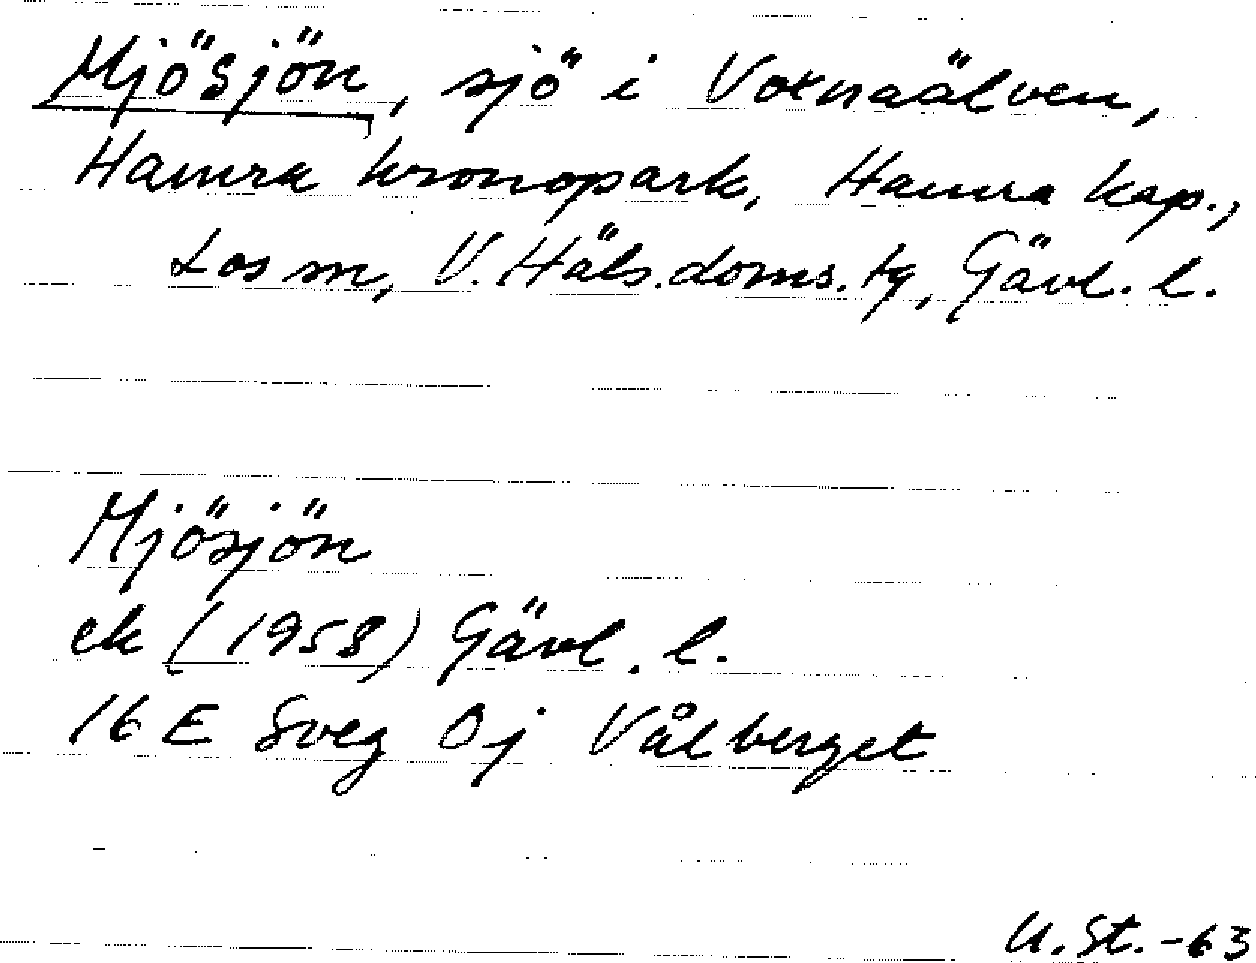 Mjösjön, sjö i Voxnaälven,
Hamra kronopark, Hamra kap.,
Los sn, V. Häls. doms. tg, Gävl. l.
Mjösjön
ek (1958) Gävl. l.
16 E Sveg 0j Vålberget
U. St. -63